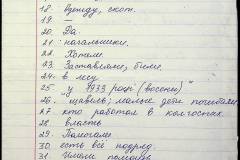 18. Вузиду, скот.
19. —
20. Да.
21. начальники.
22. Хотели.
23. Заставляли, били.
24. в лесу
25. у 1933 році (восени)
26. щавель; малые дети погибали
27 кто работал в колхозах
28. власть
29. Помогали
30. есть всё подряд
31 помощь